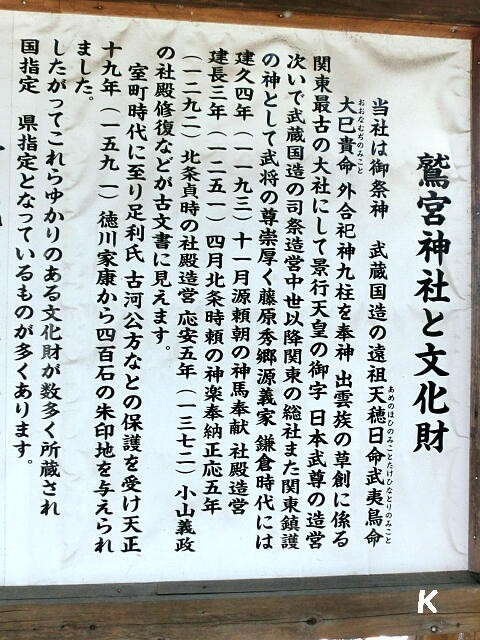 鷲宮神社と文化財
当社は御祭神 武蔵国造の遠祖天穂日命武夷鳥命
あめのほひのみことたけひなとりのみこと
大巳貴命外合祀神九柱を奉神 出雲族の草創に係る
おおなむぢのみこと
関東最古の大社にして景行天皇の御字 日本武尊の造営
次いで武蔵国造の司祭造営中世以降関東の総社また関東鎮護
の神として武将の尊崇厚く藤原秀郷源義家 鎌倉時代には
建久四年（一一九三）十一月源頼朝の神馬奉献 社殿造営
建長三年（一二五一）四月北条時頼の神楽奉納正応五年
（一二九二）北条貞時の社殿造営 応安五年（一三七二）小山義政
の社殿修復などが古文書に見えます。
室町時代に至り足利氏 古河公方などの保護を受け天正
十九年（一五九一）徳川家康から四百石の朱印地を与えられ
ました。
したがってこれらゆかりのある文化財が数多く所蔵され
国指定 県指定となっているものが多くあります。
K